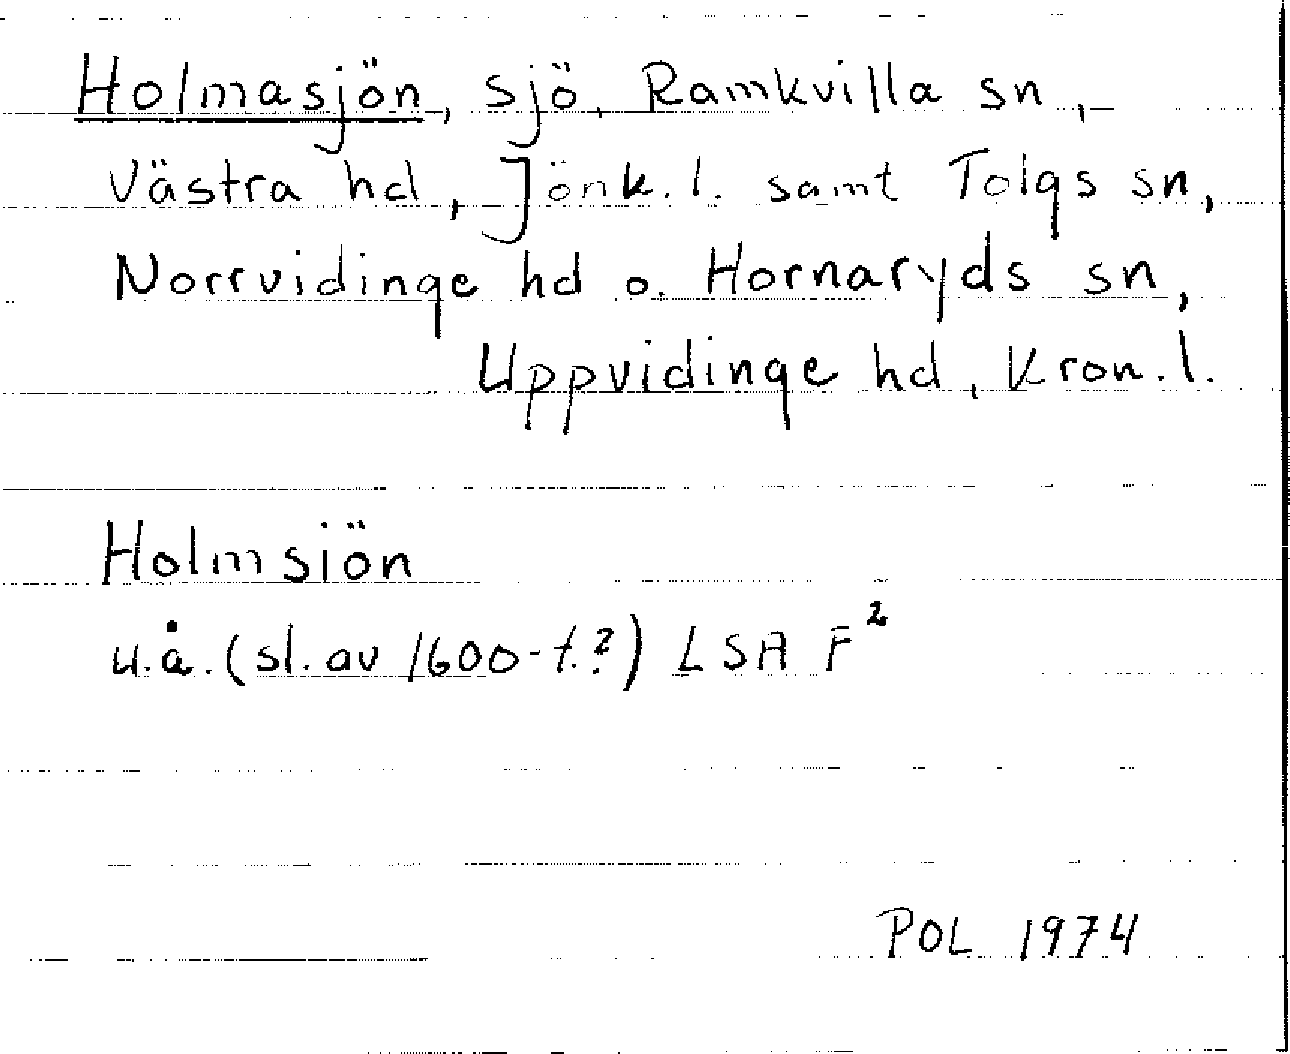 Holmasjön, sjö, Ramkvilla sn,
Västra hd, Jönk. l. samt Tolgs sn,
Norrvidinge hd o. Hornaryds sn,
Uppvidinge hd, Kron. l.
Holmsiön
u.å. (sl. av 1600-t.?) LSA F²
POL 1974